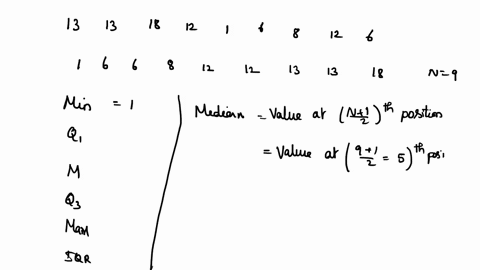 13 13 18 12 1 6 8 12 6
1 6 6 8 12 12 13 13 18 N=9
Min = 1
Median = Value at (N+1/2)th position
Q1
= Value at (9+1/2 = 5)th posi
M
Q3
Max
IQR